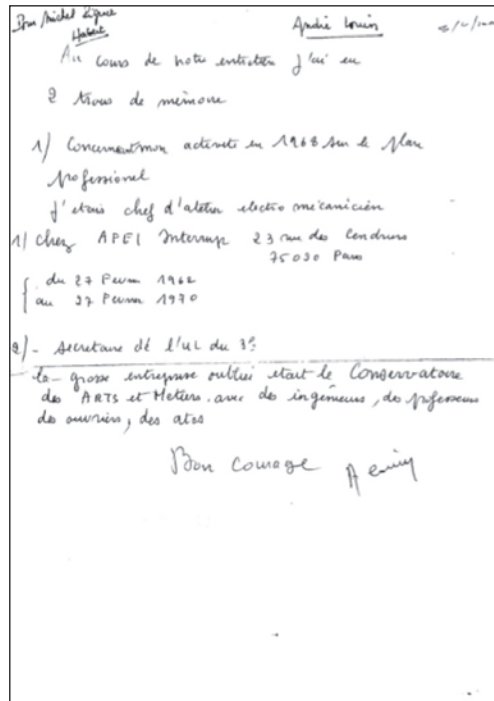 Pour Michel
André
Au cours de notre entretien j'ai eu
2 trous de mémoire
1/ Concernant mon activité en 1968 sur le plan
professionel
j'étais chef d'atelier electro mécanicien
1/ chez APEI Interrup 23 rue des Cendriers
75020 Paris
du 27 Fevrier 1962
au 27 Fevrier 1970
2/ - secretaire de l'UL du 3e
la grosse entreprise oubliée etait le Conservatoire
des ARTS et Metiers avec des ingénieurs, des professeurs
des ouvriers, des atos
Bon Courage